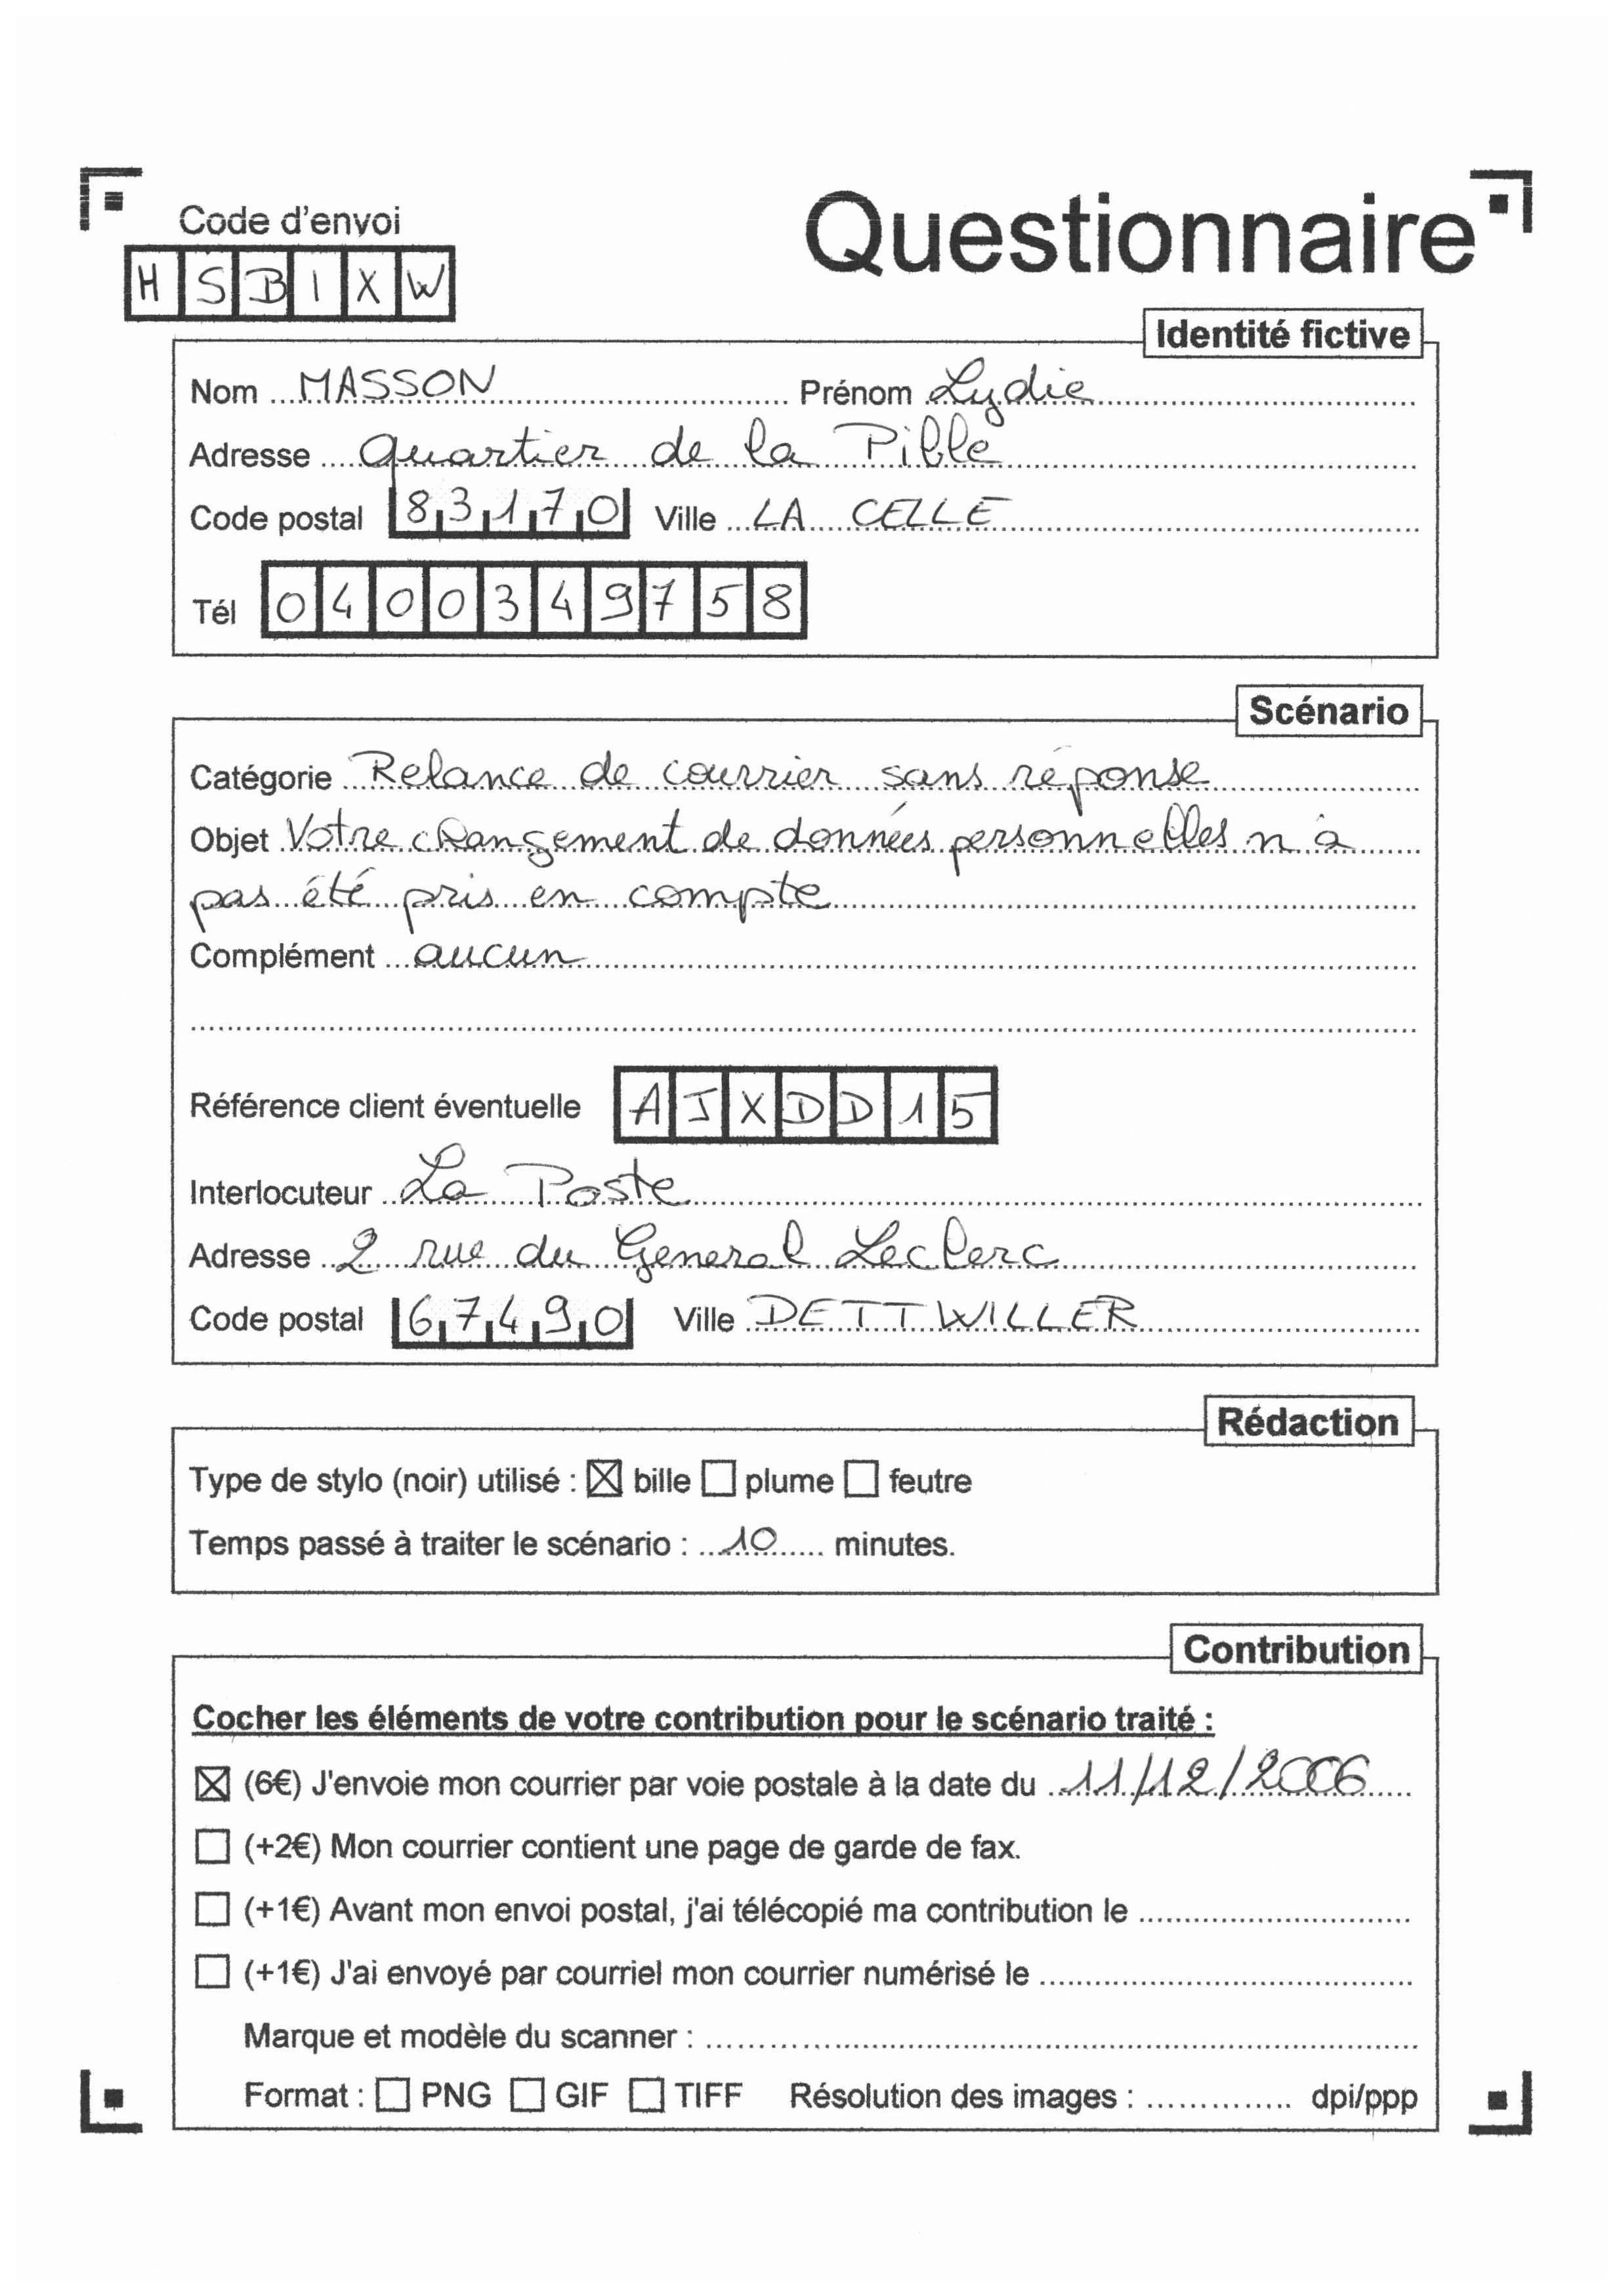 Code d'envoi
Questionnaire
HSBIXW
Identité fictive
Nom MASSON Prénom Lydie
Adresse quartier de la Pible
Code postal 83170 Ville LA CELLE
Tél 0400349758
Scénario
Catégorie Relance de courrier sans réponse
Objet Votre changement de données personnelles n'a
pas été pris en compte
Complément aucun
Référence client éventuelle AJXDD15
Interlocuteur La Poste
Adresse 2 rue du General Leclerc
Code postal 67490 Ville DETTWILLER
Rédaction
Type de stylo (noir) utilisé : ☒ bille ☐ plume ☐ feutre
Temps passé à traiter le scénario : 10 minutes.
Contribution
Cocher les éléments de votre contribution pour le scénario traité :
☒ (6€) J'envoie mon courrier par voie postale à la date du 11/12/2006
☐ (+2€) Mon courrier contient une page de garde de fax.
☐ (+1€) Avant mon envoi postal, j'ai télécopié ma contribution le
☐ (+1€) J'ai envoyé par courriel mon courrier numérisé le
Marque et modèle du scanner :
Format : ☐ PNG ☐ GIF ☐ TIFF Résolution des images : dpi/ppp